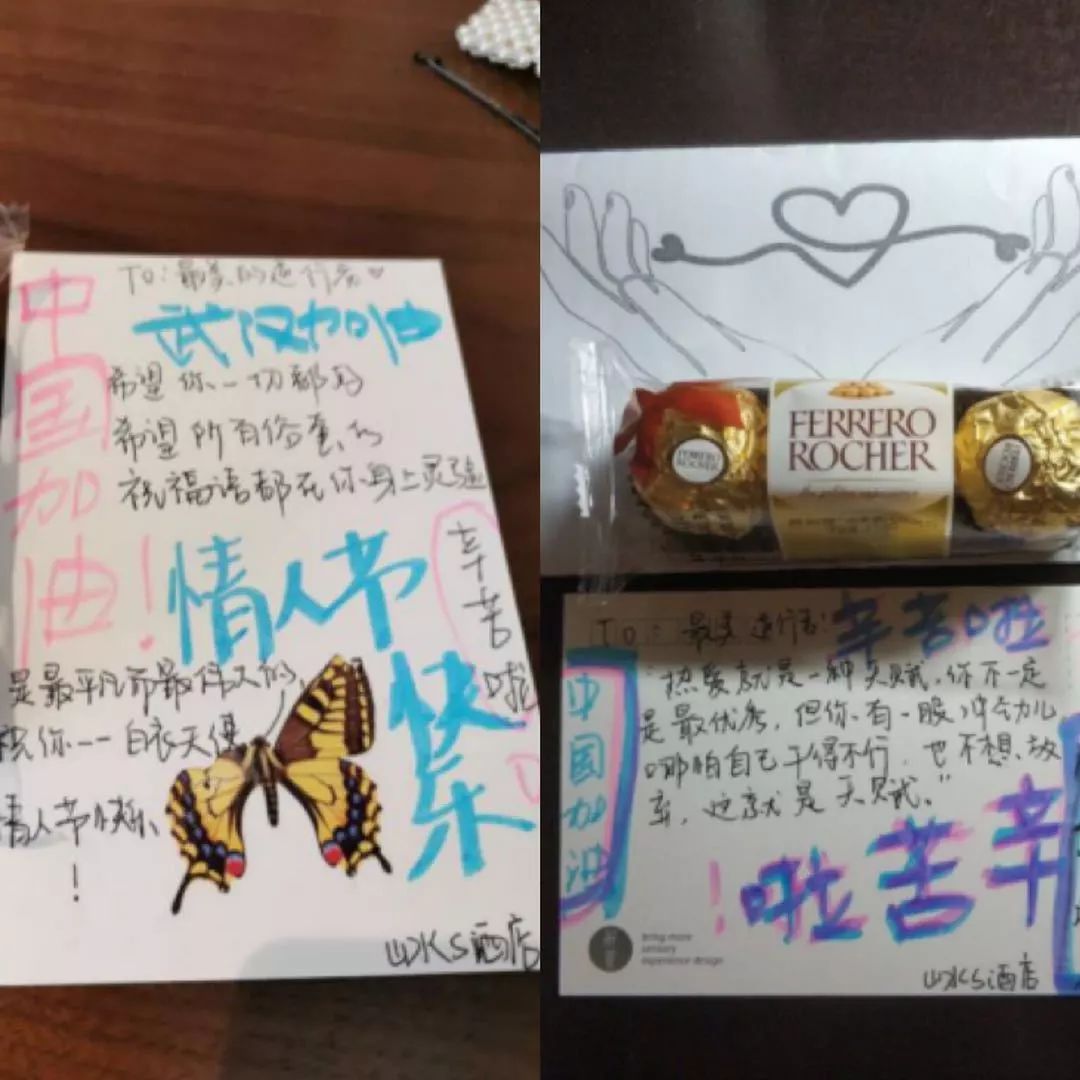 中国加油!
TO:最美的逆行者♡
武汉加油
希望你一切都好
希望所有俗套的
祝福语都在你身上灵验
情人节
快乐
辛苦
啦
是最平凡而最伟大的,
祝你——白衣天使
情人节快乐
!
WKS酒店
FERRERO
ROCHER
FERRERO
ROCHER
FERRERO
ROCHER
TO: 最美逆行者:
辛苦啦
中国加油
"热爱就是一种天赋,你不一定
是最优秀,但你有一股冲劲儿
哪怕自己干得不行,也不想放
弃,这就是天赋。"
辛苦啦!
bring more
sensory
experience design
WKS酒店